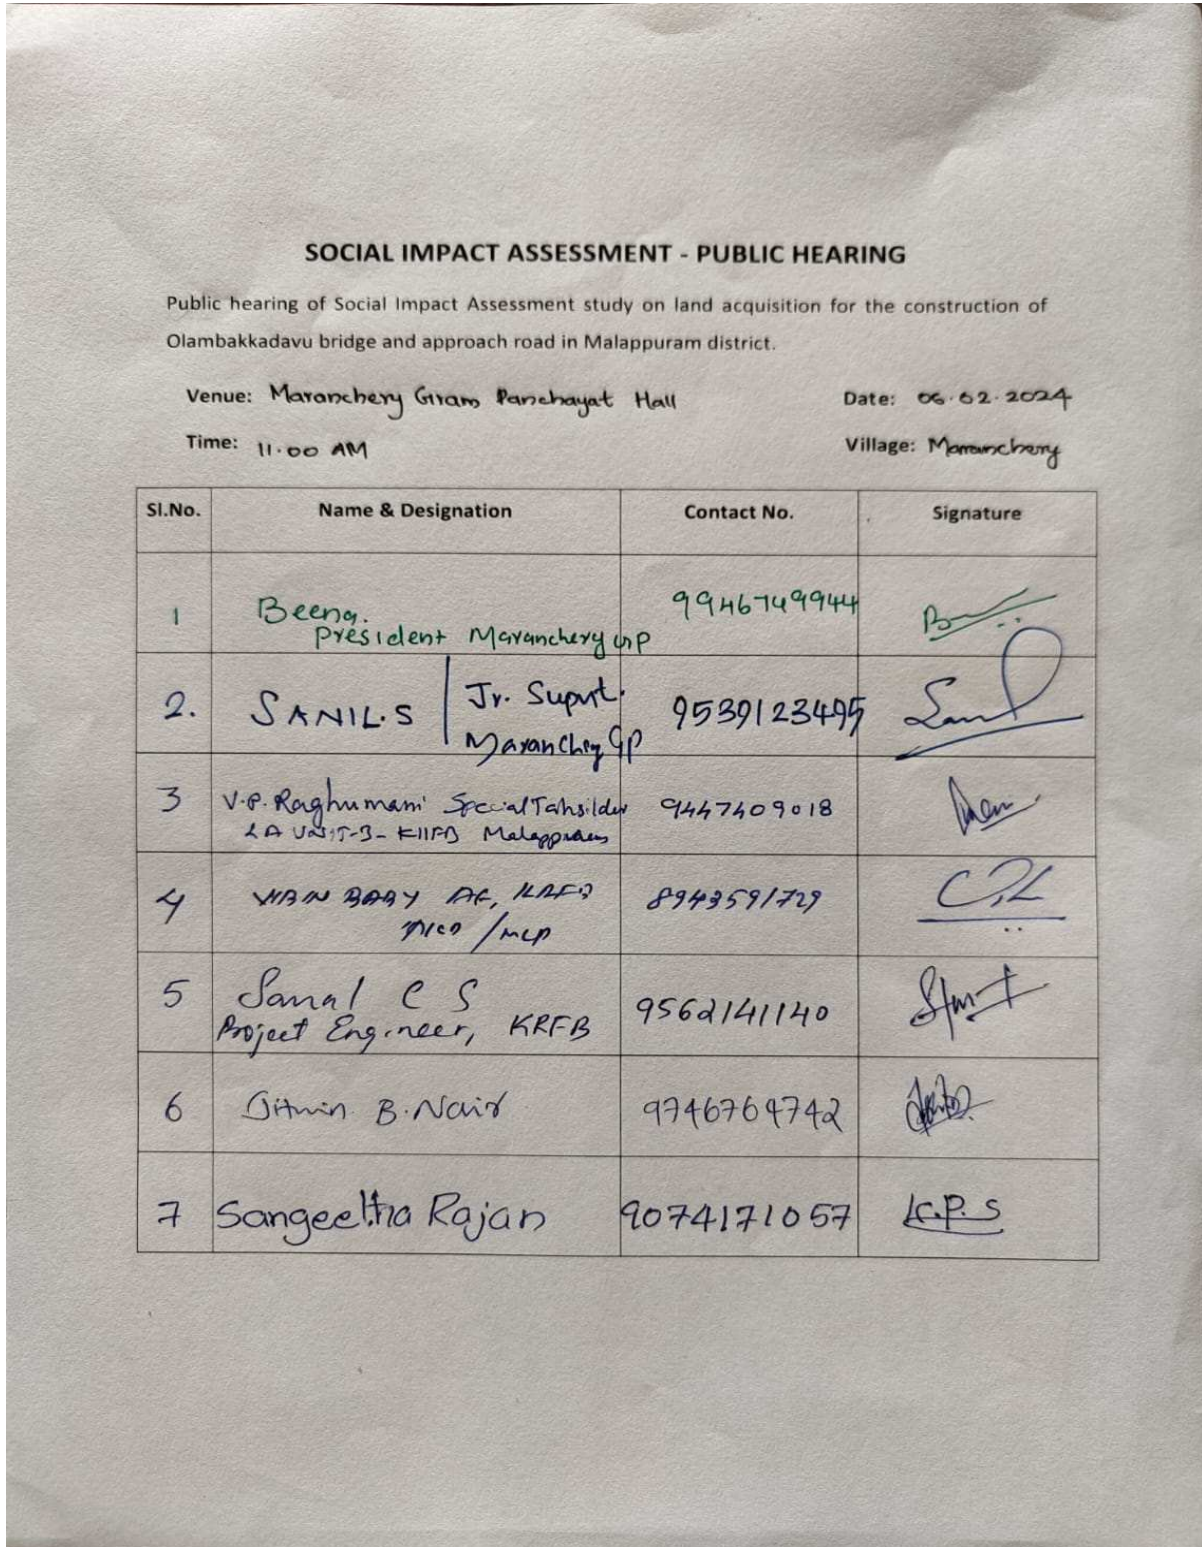 SOCIAL IMPACT ASSESSMENT - PUBLIC HEARING
Public hearing of Social Impact Assessment study on land acquisition for the construction of
Olambakkadavu bridge and approach road in Malappuram district.
Venue: Maranchery Gram Panchayat Hall Date: 06.02.2024
Time: 11.00 AM Village: Maranchery
Sl.No. Name & Designation Contact No. Signature
1 Beena. 9946749944
President Maranchery GP
2. SANIL.S Jr. Supdt. 9539123495
Maranchery GP
3 V.P. Raghumani Special Tahsildar 9447409018
LA UNIT-3- KIIFB Malappuram
4 BABY AE, KRFB 8943591729
/MLP
5 Sanal C S 9562141140
Project Engineer, KRFB
6 Jithin B. Nair 9746764742
7 Sangeetha Rajan 9074171057 K.P.S